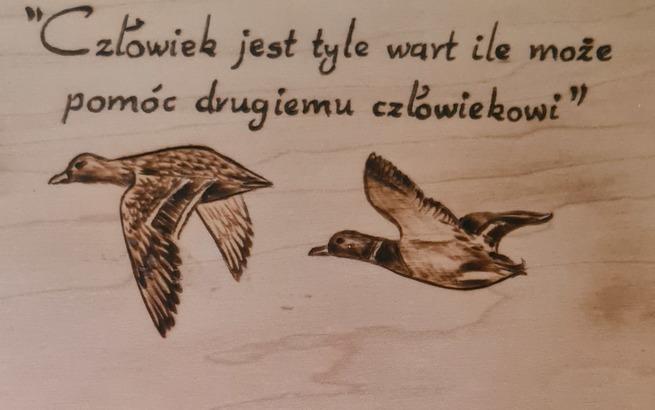 "Człowiek jest tyle wart ile może
pomóc drugiemu człowiekowi"